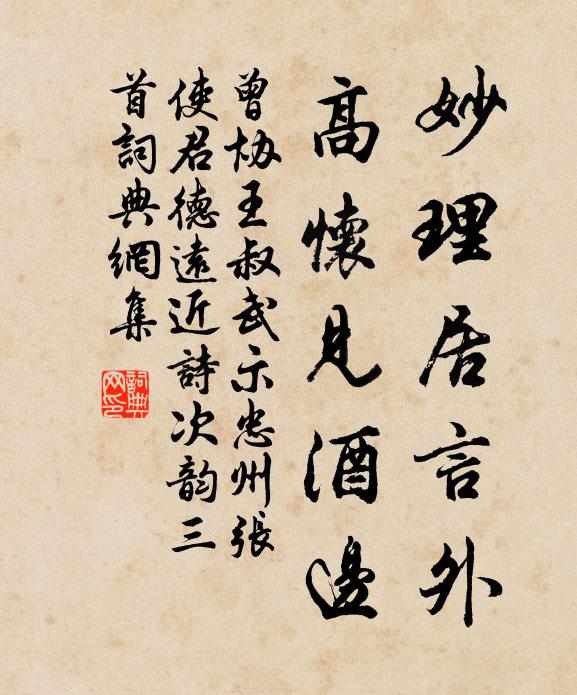 妙理居言外
高懷見酒邊
曾協王叔武示忠州張
使君德遠近詩次韵三
首詞典網集
詞典
网印